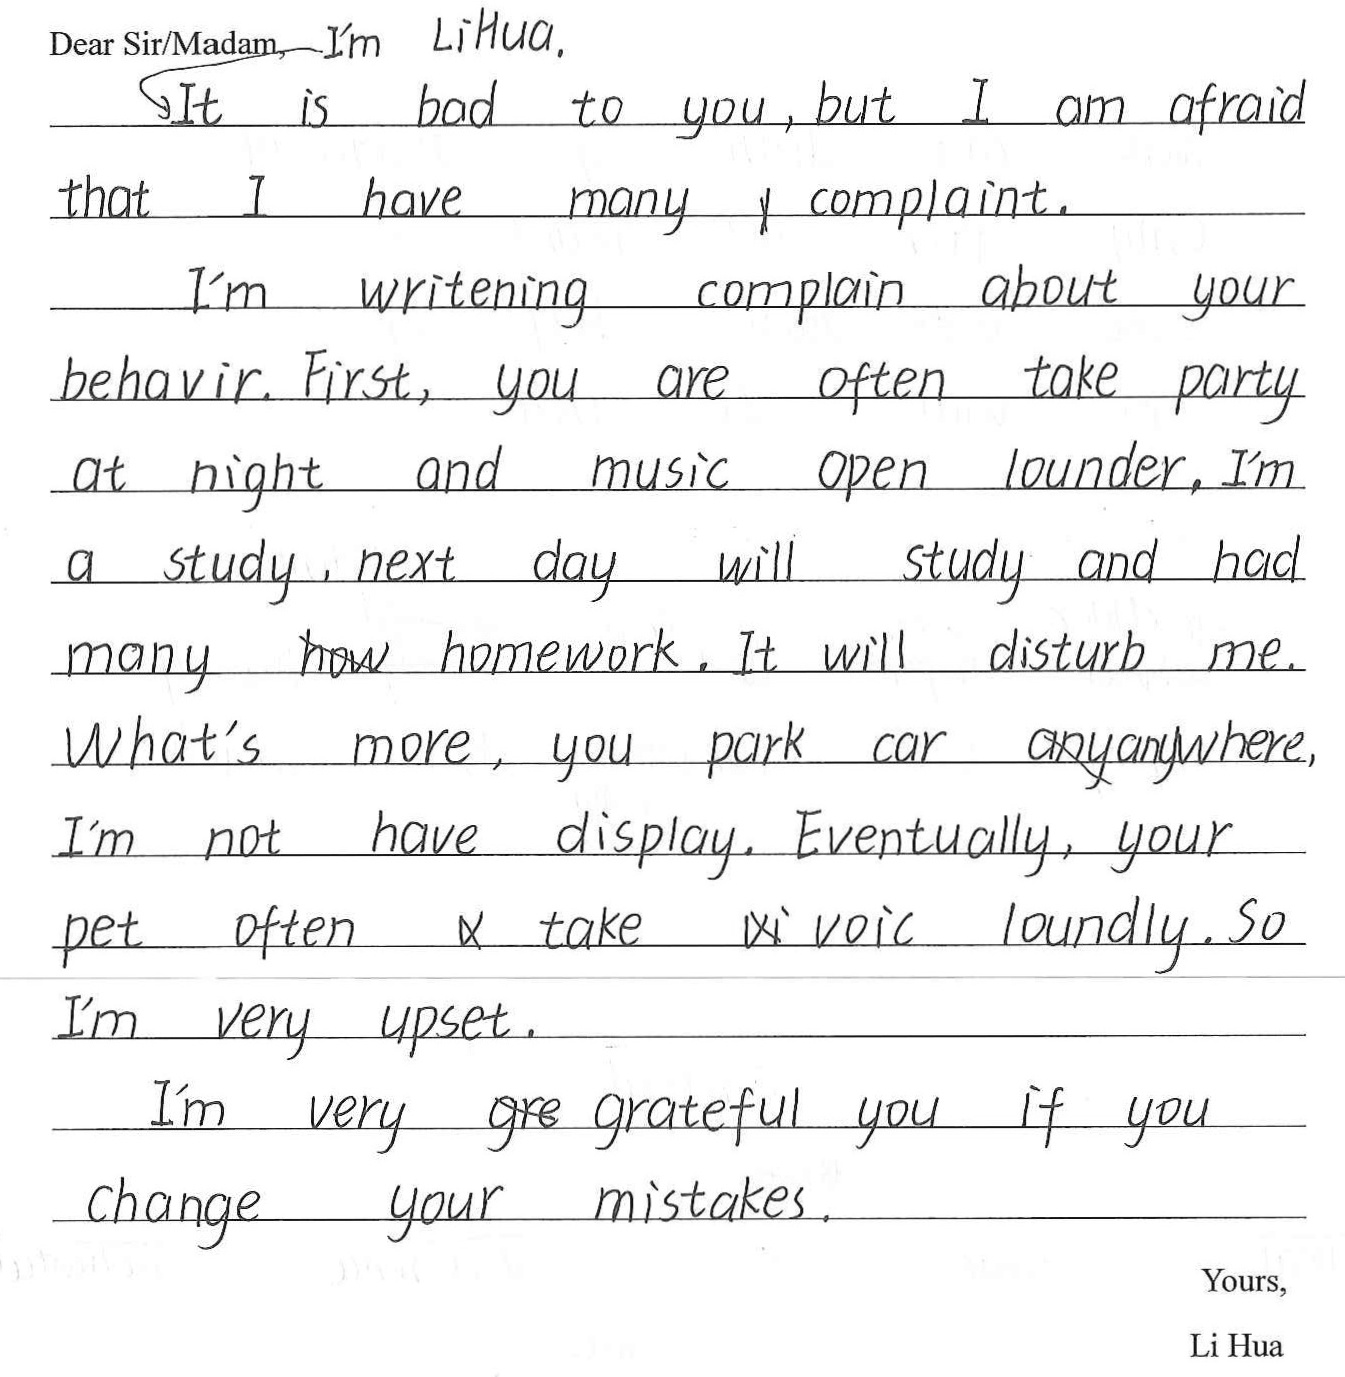 Dear Sir/Madam, I'm LiHua.
It is bad to you, but I am afraid
that I have many complaint.
I'm writening complain about your
behavir. First, you are often take party
at night and music open lounder, I'm
a study, next day will study and had
many how homework. It will disturb me.
What's more, you park car anyanywhere,
I'm not have display. Eventually, your
pet often take voic loundly. So
I'm very upset.
I'm very gre grateful you if you
change your mistakes.
Yours,
Li Hua